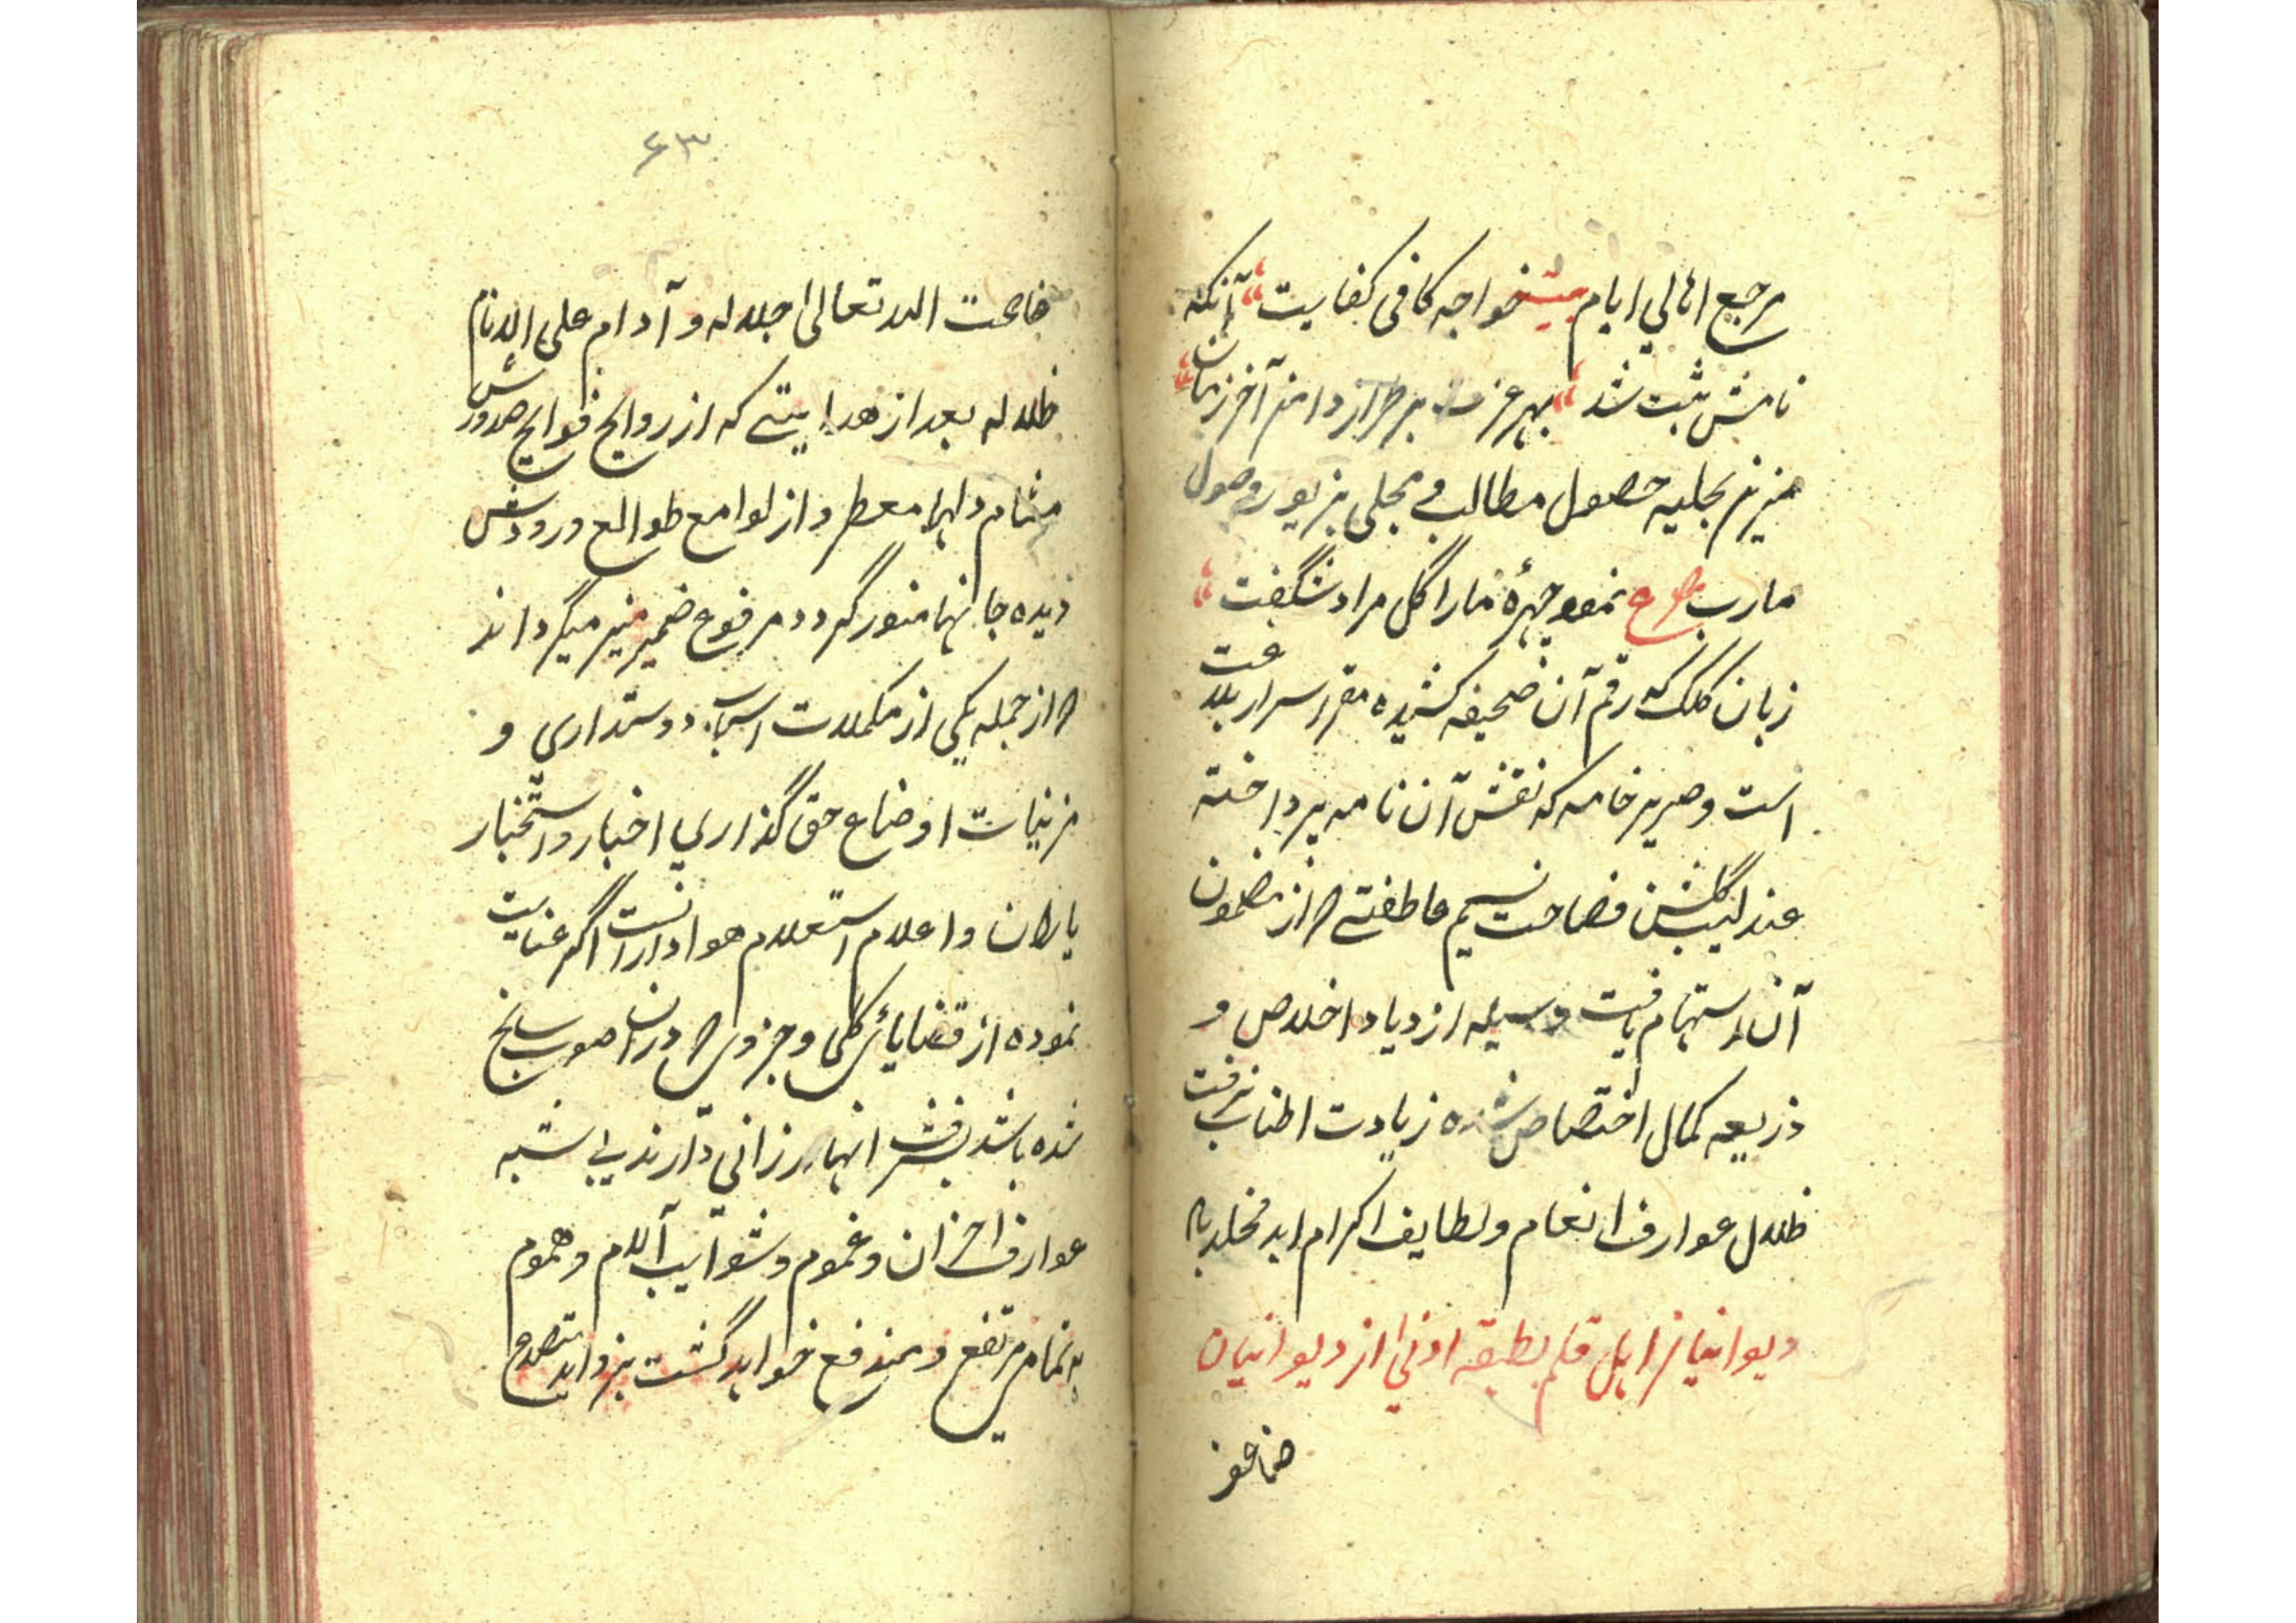 مرجع اهالي ايام بيت خواجه كافى كفايت آنكه
نامش ثبت شد بهر عزت بر طراز دامن آخر زمان
مزين بحليه حصول مطالب و مجلى بزيور وصول
مارب ع نمود چهرهٔ ما را گل مراد شگفت
زبان كلك كه رقم آن صحيفه كشيده مقرر اسرار بلاغت
است و صرير خامه كه نقش آن نامه پرداخته
عندليب گلشن فصاحت نسيم عاطفتى كه از مضمون
آن استشمام يافت وسيله ازدياد اخلاص و
ذريعه كمال اختصاص شده زيادت اطناب نرفت
ظلال عوارف انعام و لطايف اكرام ابد مخلد باد
ديوانيان اهل قلم بطبقه ادنى از ديوانيان
ضاعف
۶۳
ضاعف الله تعالى اجلاله و آدام على الانام
ظلاله بعد از هدايتى كه از روايح فوايح صدورش
مشام دلها معطر و از لوامع طوالع ورودش
ديده جانها منور گردد مرفوع ضمير منير ميگرداند
كه از جمله يكى از مكملات اسباب دوستدارى و
مزينات اوضاع حق گذارى اخبار و استخبار
ياران و اعلام استعلام هوادارانست اگر عنايت
نموده از قضاياى كلى و جزوى كه در آن صوب سانح
شده باشد بشرف انها ارزانى دارند بى شبه
عوارف احزان و غموم و شوايب آلام و هموم
بتمام مرتفع و مندفع خواهد گشت بزوايد متصدع